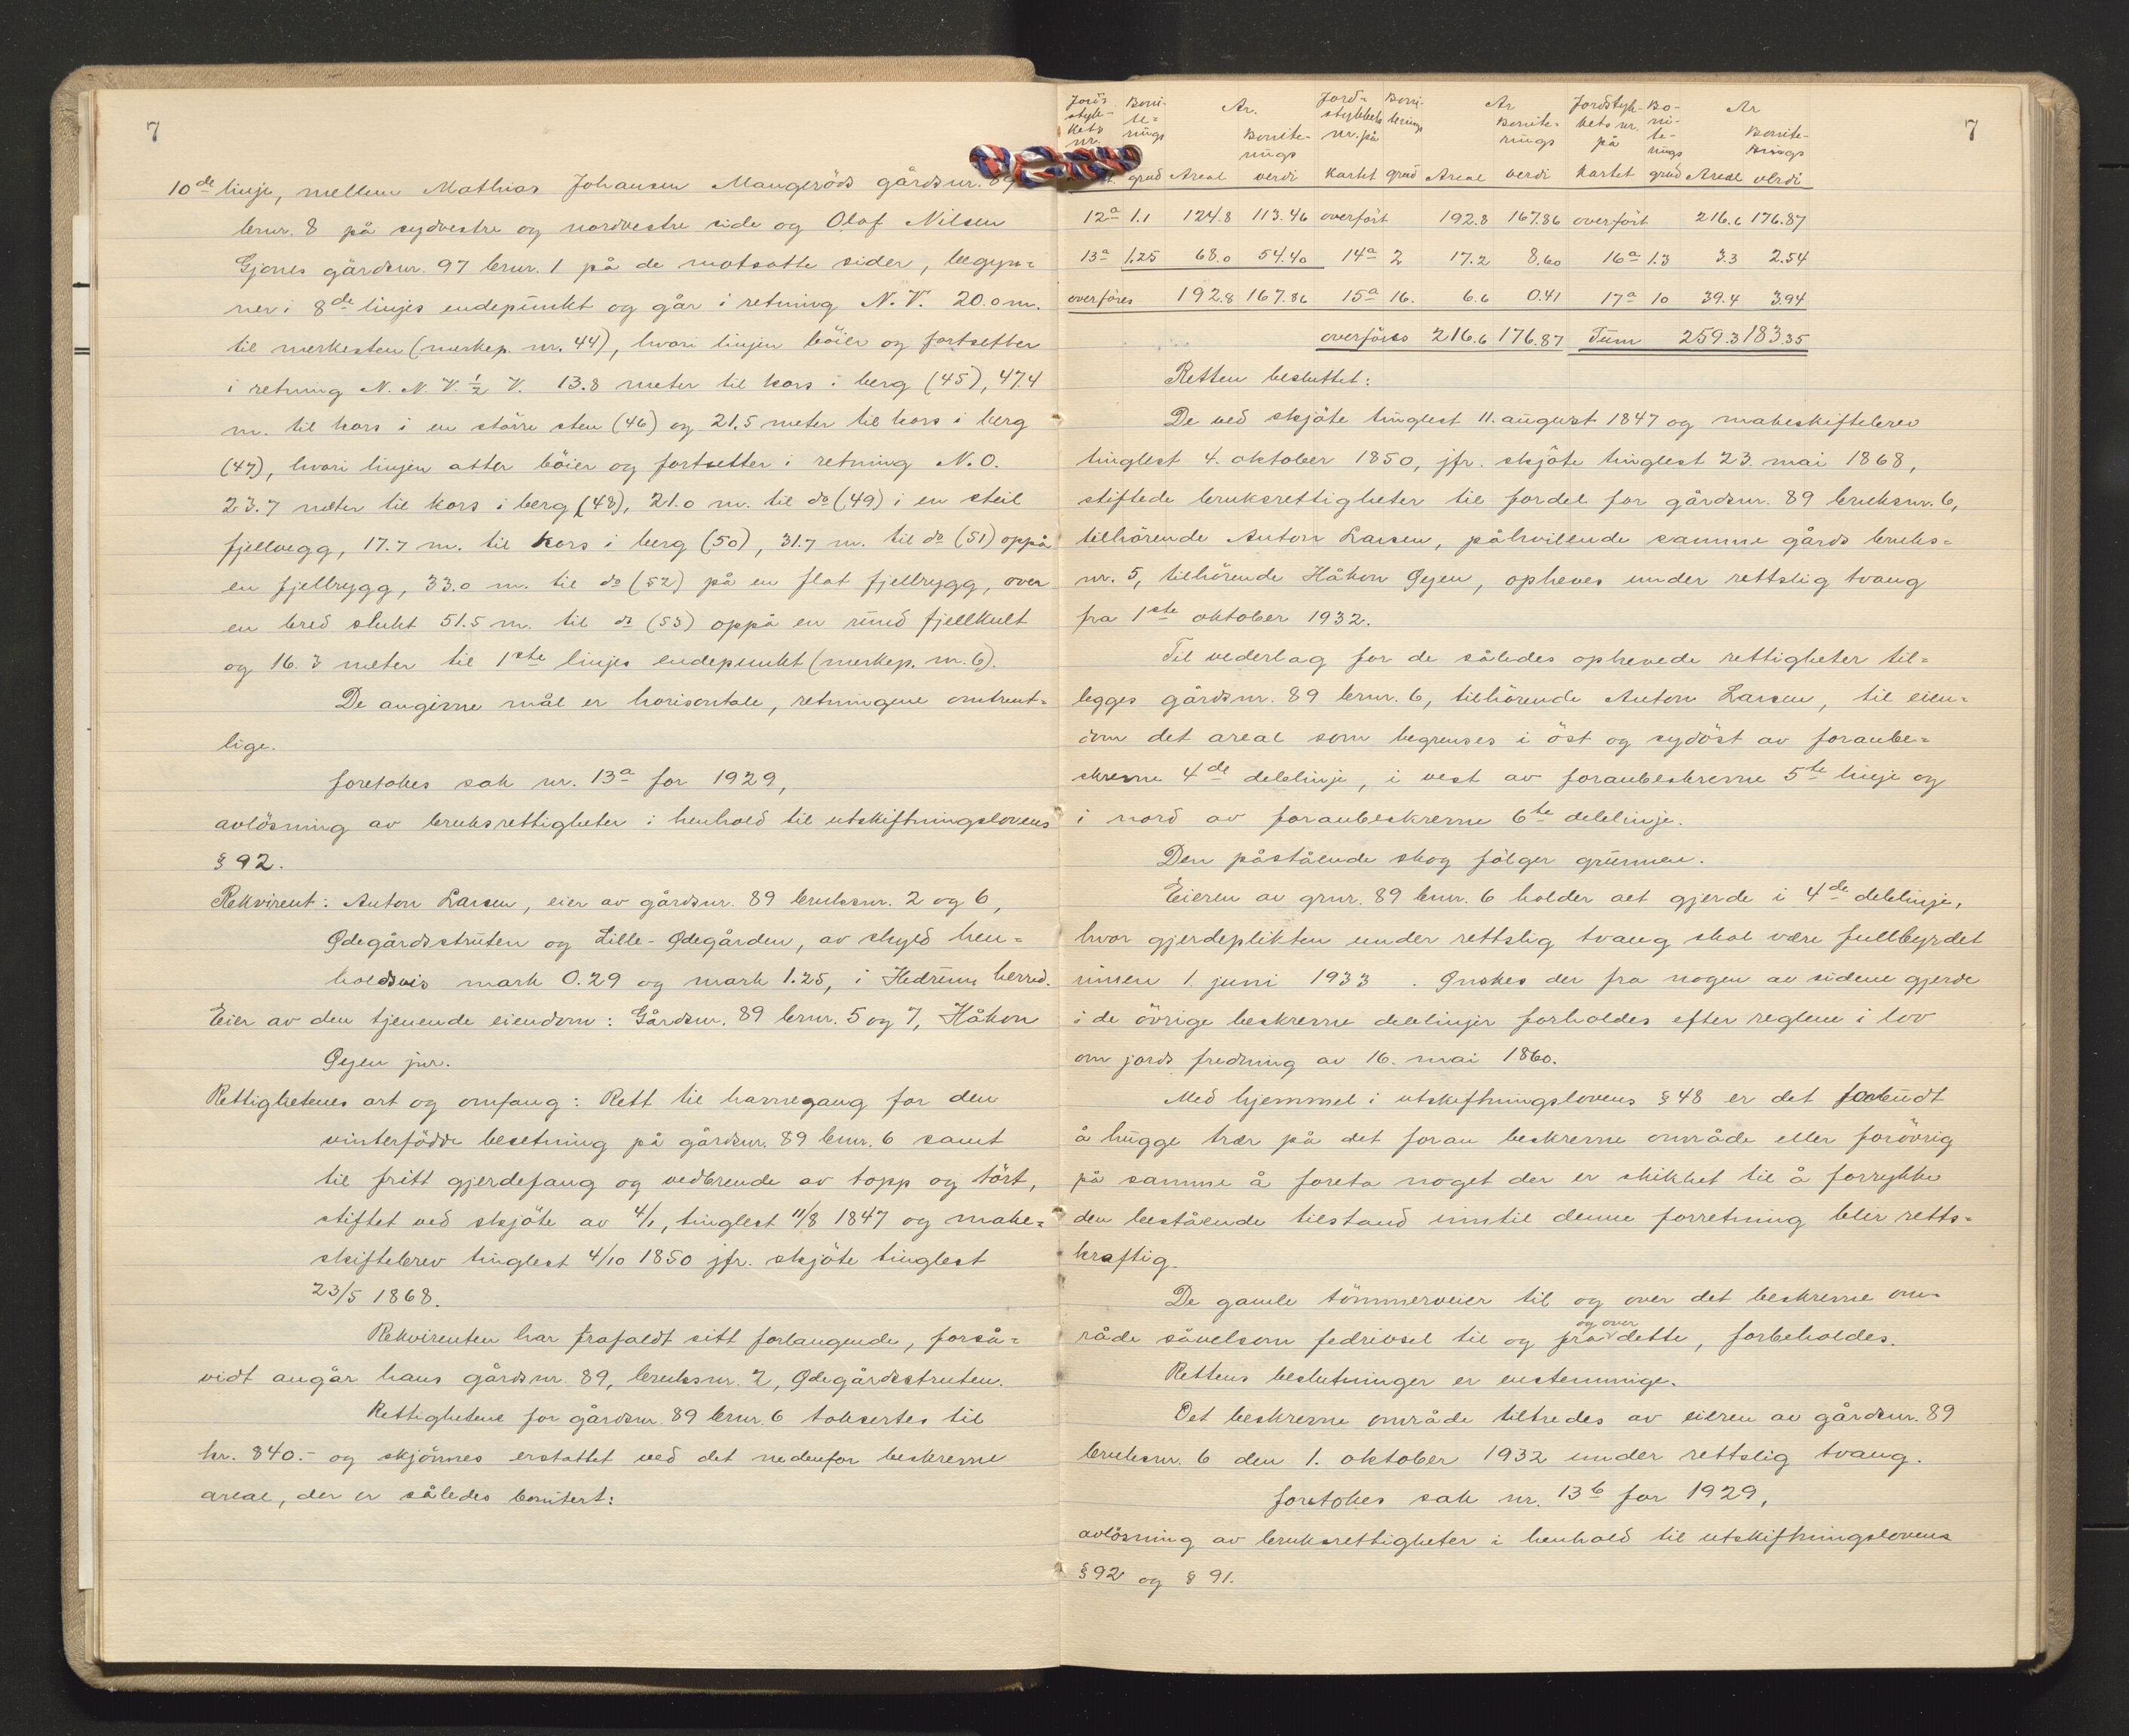 7
10de linje, mellem Mathias Johansen Maugeröds gårdsnr. 89
brnr. 8 på sydvestre og nordvestre side og Olaf Nilsen
Gjones gårdsnr. 97 brnr. 1 på de motsatte sider, begyn=
ner i 8de linjes endepunkt og går i retning N.V. 20.0 m.
til merkesten (merkep. nr. 44), hvori linjen böier og fortsetter
i retning N.N.V. ½ V. 13.8 meter til kors i berg (45), 47.4
m. til kors i en större sten (46) og 21.5 meter til kors i berg
(47), hvori linjen atter böier og fortsetter i retning N.O.
23.7 meter til kors i berg (48), 21.0 m. til do (49) i en steil
fjellvegg, 17.7 m. til kors i berg (50), 31.7 m. til do (51) oppå
en fjellrygg, 33.0 m. til do (52) på en flat fjellrygg, over
en bred slukt 51.5 m. til do (53) oppå en rund fjellkult
og 16.3 meter til 1ste linjes endepunkt (merkep. nr. 6).
De angivne mål er horisontale, retningene omtrent=
lige.
Foretokes sak nr. 13a for 1929,
avlösning av bruksrettigheter i henhold til utskiftningslovens
§ 92.
Rekvirent: Anton Larsen, eier av gårdsnr. 89 bruksnr. 2 og 6,
Ødegårdsstruten og Lille-Ødegården, av skyld hen=
holdsvis mark 0.29 og mark 1.25, i Hedrum herred.
Eier av den tjenende eiendom: Gårdsnr. 89 brnr. 5 og 7, Håkon
Øyen jnr.
Rettighetenes art og omfang: Rett til havnegang for den
vinterfödde besetning på gårdsnr. 89 brnr. 6 samt
til fritt gjerdefang og vedbrende av topp og tört,
stiftet ved skjöte av 4/1, tinglest 11/8 1847 og make=
skiftebrev tinglest 4/10 1850 jfr. skjöte tinglest
23/5 1868.
Rekvirenten har frafaldt sitt forlangende, forså=
vidt angår hans gårdsnr. 89, bruksnr. 2, Ødegårdsstruten.
Rettighetene for gårdsnr. 89 brnr. 6 taksertes til
kr. 840.- og skjönnes erstattet ved det nedenfor beskrevne
areal, der er således bonitert:
7
Jord= stykkets nr. grad Boni- te= rings Ar. Areal Bonite= rings verdi Jord= stykkets nr. på kartet Boni- terings grad Ar Areal Bonite= rings verdi Jordstyk- kets nr. på kartet Bo- ni- te- rings grad Ar Areal Bonite- rings verdi
12a 1.1 124.8 113.46 overfört 192.8 167.86 overfört 216.6 176.87
13a 1.25 68.0 54.40 14a 2 17.2 8.60 16a 1.3 3.3 2.54
overföres 192.8 167.86 15a 16. 6.6 0.41 17a 10 39.4 3.94
overföres 216.6 176.87 Sum 259.3 183.35
Retten besluttet:
De ved skjöte tinglest 11. august 1847 og makeskiftebrev
tinglest 4. oktober 1850, jfr. skjöte tinglest 23. mai 1868,
stiftede bruksrettigheter til fordel for gårdsnr. 89 bruksnr. 6,
tilhörende Anton Larsen, påhvilende samme gårds bruks=
nr. 5, tilhörende Håkon Øyen, opheves under rettslig tvang
fra 1ste oktober 1932.
Til vederlag for de således ophevede rettigheter til=
legges gårdsnr. 89 brnr. 6, tilhörende Anton Larsen, til eien=
dom det areal som begrenses i öst og sydöst av foranbe=
skrevne 4de delelinje, i vest av foranbeskrevne 5te linje og
i nord av foranbeskrevne 6te delelinje.
Den påstående skog fölger grunnen.
Eieren av grnr. 89 brnr. 6 holder alt gjerde i 4de delelinje,
hvor gjerdeplikten under rettslig tvang skal være fullbyrdet
innen 1. juni 1933. Ønskes der fra nogen av sidene gjerde
i de övrige beskrevne delelinjer forholdes efter reglene i lov
om jords fredning av 16. mai 1860.
Med hjemmel i utskiftningslovens § 48 er det forbudt
å hugge trær på det foran beskrevne område eller forövrig
på samme å foreta noget der er skikket til å forrykke
den bestående tilstand inntil denne forretning blir retts=
kraftig.
De gamle tömmerveier til og over det beskrevne om=
råde såvelsom fedrivsel til og fra og over dette, forbeholdes.
Rettens beslutninger er enstemmige.
Det beskrevne område tiltredes av eieren av gårdsnr. 89
bruksnr. 6 den 1. oktober 1932 under rettslig tvang.
Foretokes sak nr. 13b for 1929,
avlösning av bruksrettigheter i henhold til utskiftningslovens
§ 92 og § 91.